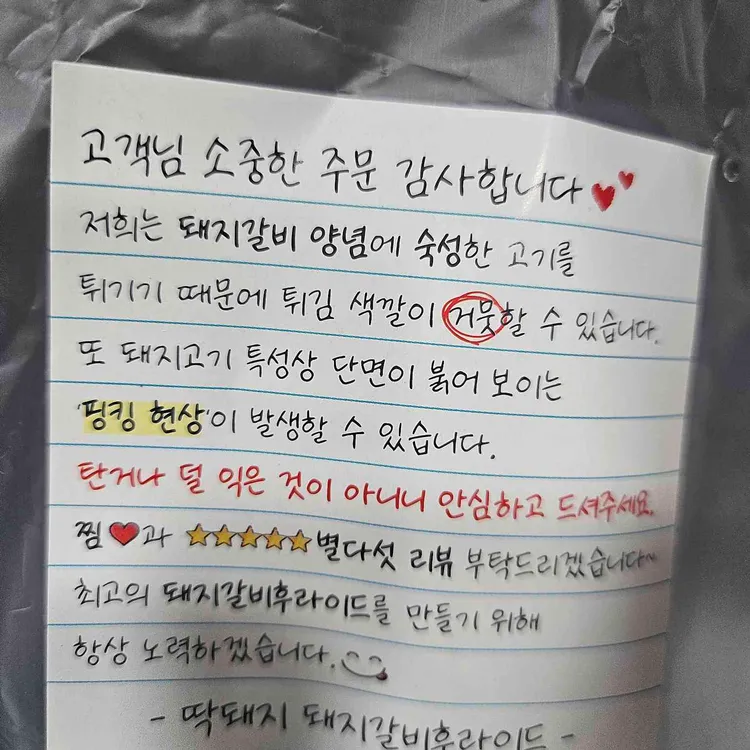 고객님 소중한 주문 감사합니다
저희는 돼지갈비 양념에 숙성한 고기를
튀기기 때문에 튀김 색깔이 거뭇할 수 있습니다.
또 돼지고기 특성상 단면이 붉어 보이는
'핑킹 현상'이 발생할 수 있습니다.
탄거나 덜 익은 것이 아니니 안심하고 드셔주세요.
찜♥과 ★★★★★별다섯 리뷰 부탁드리겠습니다~
최고의 돼지갈비후라이드를 만들기 위해
항상 노력하겠습니다.
- 딱돼지 돼지갈비후라이드 -